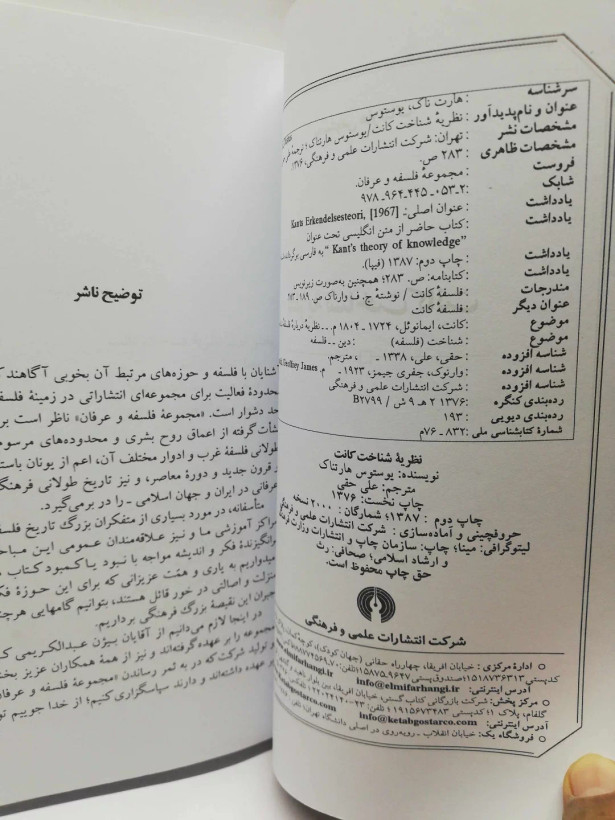 سرشناسه : هارت ناک، یوستوس
عنوان و نام‌پدیدآور : نظریهٔ شناخت کانت/یوستوس هارتناک؛ ترجمهٔ علی
مشخصات نشر : تهران: شرکت انتشارات علمی و فرهنگی، ۱۳۷۶.
مشخصات ظاهری : ۲۸۳ ص.
فروست : مجموعهٔ فلسفه و عرفان.
شابک : ۲-۰۵۳-۴۴۵-۹۶۴-۹۷۸
یادداشت : عنوان اصلی: Kants Erkendelsesteori, [1967]
یادداشت : کتاب حاضر از متن انگلیسی تحت عنوان
"Kant's theory of knowledge" به فارسی
یادداشت : چاپ دوم: ۱۳۸۷ (فیپا).
یادداشت : کتابنامه: ص. ۲۸۳؛ همچنین به‌صورت زیرنویس
مندرجات : فلسفهٔ کانت / نوشتهٔ ج. ف وارناک ص. ۱۸۹ـ
عنوان دیگر : فلسفهٔ کانت
موضوع : کانت، ایمانوئل، ۱۷۲۴ ـ ۱۸۰۴ م. ــ نظریه دربارهٔ
موضوع : شناخت (فلسفه) : دین ــ فلسفه
شناسه افزوده : حقی، علی، ۱۳۳۸ ـ ، مترجم.
شناسه افزوده : وارنوک، جفری جیمز، ۱۹۲۳ ـ م. Geoffrey James
شناسه افزوده : شرکت انتشارات علمی و فرهنگی
رده‌بندی کنگره : ۱۳۷۶ ۲ هـ ۹ ش / B۲۷۹۹
رده‌بندی دیویی : ۱۹۳
شمارهٔ کتابشناسی ملی : ۸۳۲ـ۷۶م
نظریهٔ شناخت کانت
نویسنده: یوستوس هارتناک
مترجم: علی حقی
چاپ نخست: ۱۳۷۶
چاپ دوم : ۱۳۸۷؛ شمارگان: ۲۰۰۰ نسخه
حروفچینی و آماده‌سازی: شرکت انتشارات علمی و فرهنگی
لیتوگرافی: مینا؛ چاپ: سازمان چاپ و انتشارات وزارت فرهنگ
و ارشاد اسلامی؛ صحافی: رث
حق چاپ محفوظ است.
شرکت انتشارات علمی و فرهنگی
اداره مرکزی: خیابان افریقا، چهارراه حقانی (جهان کودک)، کوچهٔ کمان،
کدپستی ۱۵۱۸۷۳۶۳۱۳؛ صندوق‌پستی
آدرس اینترنتی: info@elmifarhangi.ir
مرکز پخش: شرکت بازرگانی کتاب گستر، خیابان افریقا، بین بلوار ناهید و
گلفام، پلاک ۱؛ کدپستی ۱۹۱۵۶۷۳۴۸۳؛ تلفن:
آدرس اینترنتی: info@ketabgostarco.com
فروشگاه یک: خیابان انقلاب ـ روبه‌روی در اصلی دانشگاه تهران؛
توضیح ناشر
شنایان با فلسفه و حوزه‌های مرتبط آن بخوبی آگاهند
حدودهٔ فعالیت برای مجموعه‌ای انتشاراتی در زمینهٔ
حد دشوار است. «مجموعهٔ فلسفه و عرفان» ناظر است
شأت‌گرفته از اعماق روح بشری و محدوده‌های
طولانی فلسفهٔ غرب و ادوار مختلف آن، اعم از یونان
قرون جدید و دورهٔ معاصر، و نیز تاریخ طولانی
عرفانی در ایران و جهان اسلامی ـ را در برمی‌گیرد.
متأسفانه، در مورد بسیاری از متفکران بزرگ تاریخ
مراکز آموزشی ما و نیز علاقه‌مندان عمومی این
برانگیزندهٔ فکر و اندیشه مواجه با نبود یا کمبود کتاب
میدواریم به یاری و همّت عزیزانی که برای این حوزهٔ
منزلت و اصالتی در خور قائل هستند، بتوانیم گامهایی
جبران این نقیصهٔ بزرگ فرهنگی برداریم.
در اینجا لازم می‌دانیم از آقایان بیژن عبدالکریمی
مجموعه را بر عهده گرفته‌اند و نیز از همهٔ همکاران عزیز
و تولید شرکت که در به ثمر رساندن «مجموعهٔ فلسفه و
عهده داشته‌اند و دارند سپاسگزاری کنیم؛ از خدا جوییم